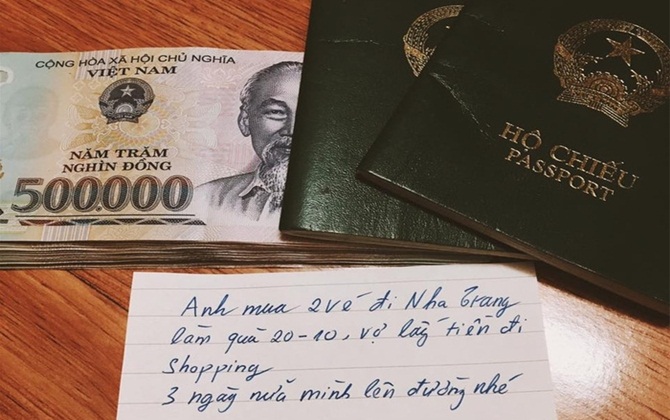 CỘNG HÒA XÃ HỘI CHỦ NGHĨA
VIỆT NAM
NĂM TRĂM
NGHÌN ĐỒNG
500.000
HỘ CHIẾU
PASSPORT
Anh mua 2 vé đi Nha Trang
làm quà 20-10, vợ lấy tiền đi
Shopping
3 ngày nữa mình lên đường nhé